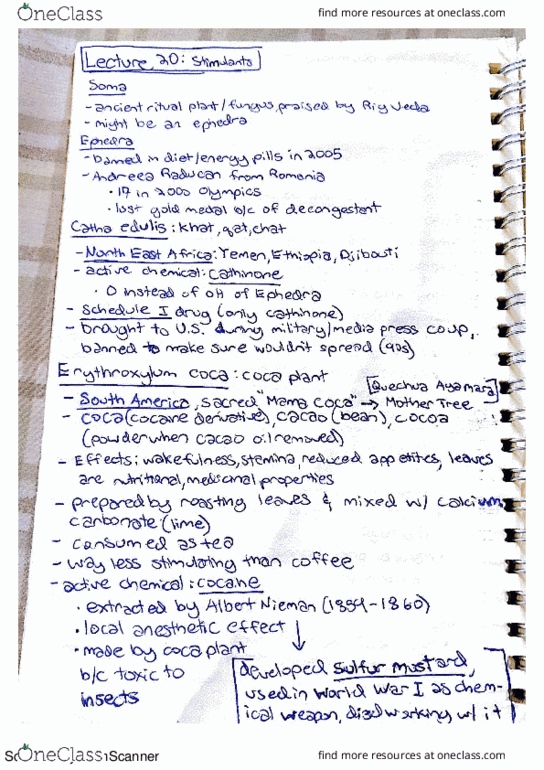 OneClass
find more resources at oneclass.com
Lecture 20: Stimulants
Soma
- ancient ritual plant/fungus, praised by Rig Veda
- might be an ephedra
Ephedra
- banned in diet/energy pills in 2005
- Andreea Raducan from Romania
• 17 in 2000 Olympics
• lost gold medal b/c of decongestant
Catha edulis: khat, qat, chat
- North East Africa: Yemen, Ethiopia, Djibouti
- active chemical: cathinone
• O instead of OH of Ephedra
- Schedule I drug (only cathinone)
- brought to U.S. during military/media press coup,
banned to make sure wouldn't spread (90s)
Erythroxylum coca: coca plant
Quechua Ayamara
- South America, sacred "Mama Coca" → Mother Tree
- coca (cocaine derivative), cacao (bean), cocoa
(powder when cacao oil removed)
- Effects: wakefulness, stemina, reduced appetites, leaves
are nutritional, medicinal properties
- prepared by roasting leaves & mixed w/ calcium
carbonate (lime)
- consumed as tea
- way less stimulating than coffee
- active chemical: cocaine
• extracted by Albert Nieman (1834-1860)
• local anesthetic effect
• made by coca plant
b/c toxic to
insects
developed sulfur mustard,
used in World War I as chem-
ical weapon, died working w/ it
OneClass
Scanner
find more resources at oneclass.com